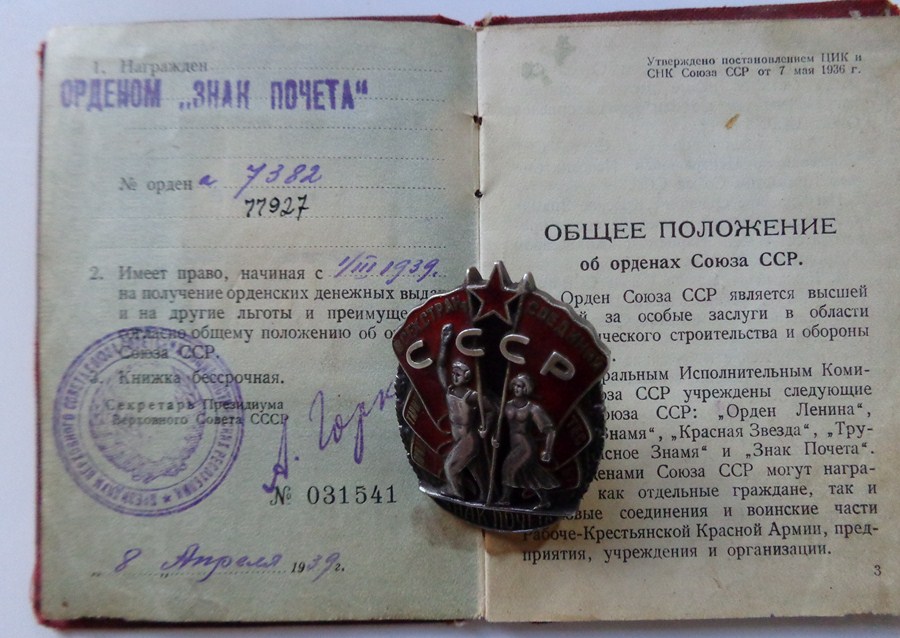 1. Награжден
ОРДЕНОМ „ЗНАК ПОЧЕТА"
№ орден а 7382
77927
2. Имеет право, начиная с 1/III 1939.
на получение орденских денежных выда
и на другие льготы и преимуще
согласно общему положению об о
Союза ССР.
3. Книжка бессрочная.
Секретарь Президиума
Верховного Совета СССР
А. Горк
№ 031541
„8 „Апреля 1939г.
Утверждено постановлением ЦИК и
СНК Союза ССР от 7 мая 1936 г.
ОБЩЕЕ ПОЛОЖЕНИЕ
об орденах Союза ССР.
Орден Союза ССР является высшей
й за особые заслуги в области
ческого строительства и обороны
ральным Исполнительным Коми-
юза ССР учреждены следующие
оюза ССР: „Орден Ленина",
Знамя", „Красная Звезда", „Тру-
асное Знамя" и „Знак Почета".
денами Союза ССР могут награ-
как отдельные граждане, так и
овые соединения и воинские части
Рабоче-Крестьянской Красной Армии, пред-
приятия, учреждения и организации.
3
СССР